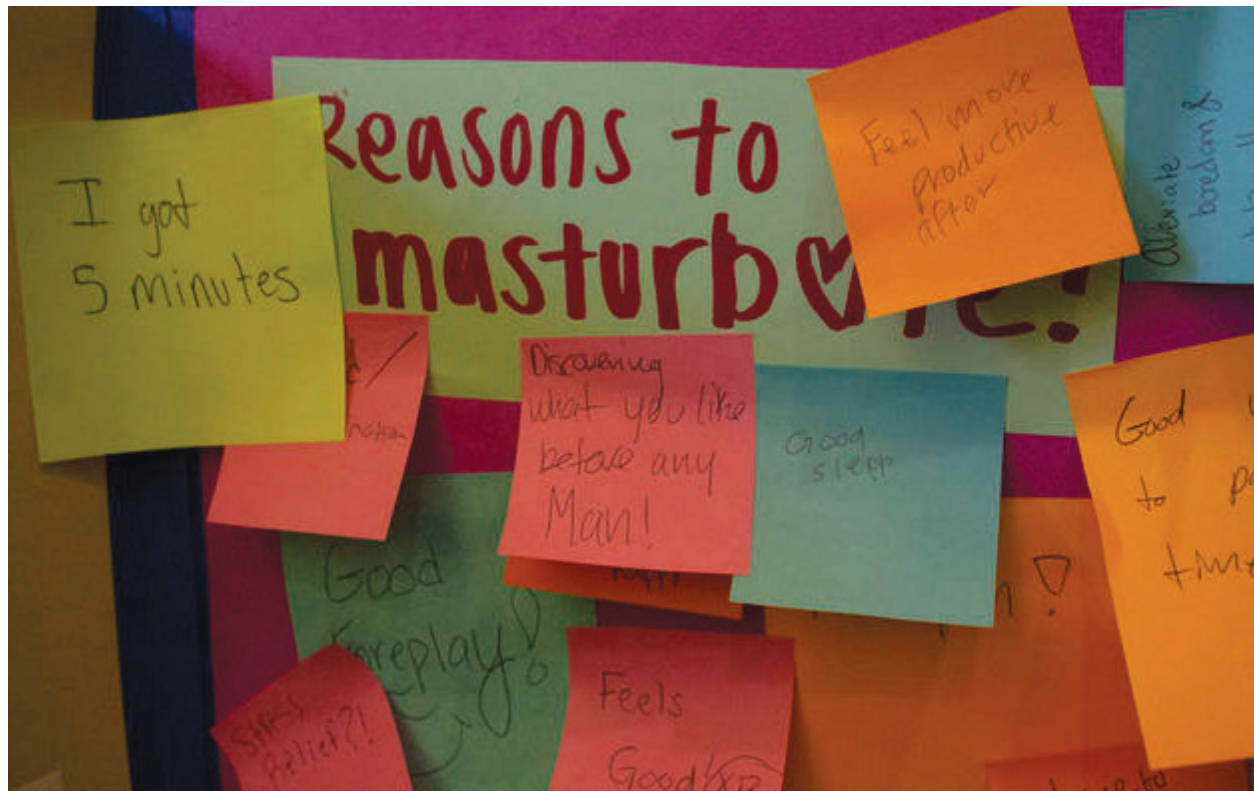 Reasons to
masturb♥te!
I got
5 minutes
Feel more
productive
after
Alleviate
boredom &
Discovering
what you like
before any
Man!
Good
sleep
Good
to
time
Good
Foreplay!
Stress
Relief?!
Feels
Good